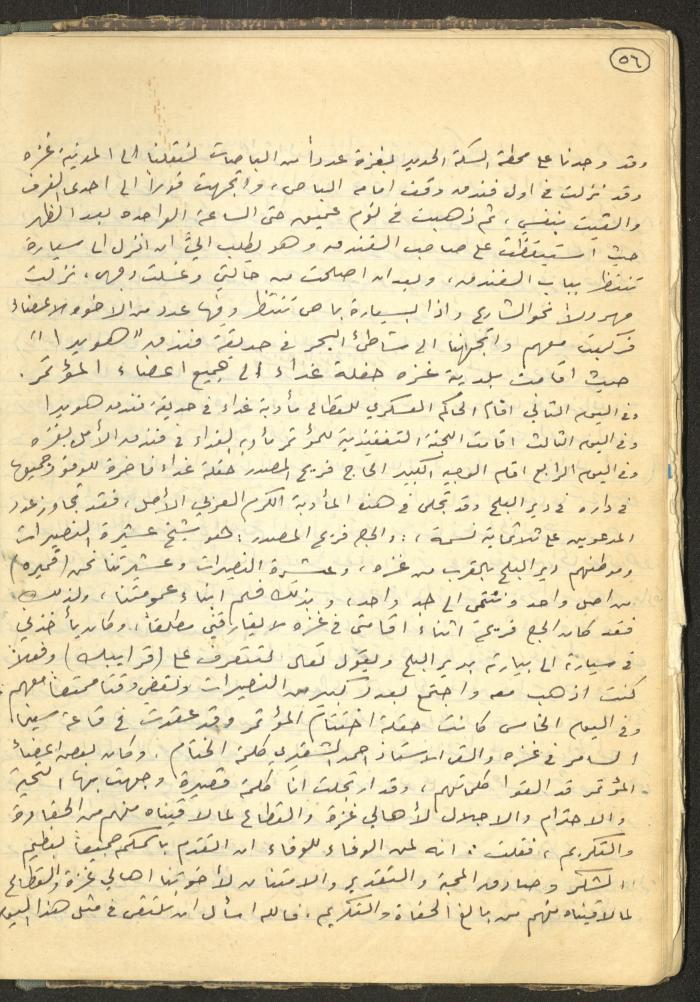 ٥٦
وقد وجدنا على محطة السكة الحديد بغزة عدداً من الباصات لتنقلنا الى المدينة غزه
وقد نزلت في اول فندق وقف امامه الباص، واتجهت فوراً الى احدى الغرف
والقيت بنفسي، ثم ذهبت في نوم عميق حتى الساعة الواحده بعد الظهر
حيث استيقظت على صاحب الفندق وهو يطلب اليَّ ان انزل الى سيارة
تنتظر بباب الفندق، وبعد ان اصلحت من حالتي وغسلت وجهي، نزلت
مهرولاً نحو الشارع واذا بسيارة باص تنتظر وفيها عدد من الاخوه الاعضاء
فركبت معهم واتجهنا الى شاطئ البحر في حديقة فندق "هويدا"
حيث اقامت بلدية غزه حفلة غداء الى جميع اعضاء المؤتمر.
وفي اليوم الثاني اقام الحاكم العسكري للقطاع مأدبة غداء في حديقة فندق هويدا
وفي اليوم الثالث اقامت اللجنة التنفيذية للمؤتمر مأدبه الغداء في فندق الأمل بغزه
وفي اليوم الرابع اقام الوجيه الكبير الحاج فريح المصدر حفلة غداء فاخرة للوفود جميعها
في داره في دير البلح وقد تجلى في هذه المأدبة الكرم العربي الأصل، فقد تجاوز عدد
المدعوين على ثلاثماية نسمة، : والحج فريح المصدر : هو شيخ عشيرة النصيرات
وموطنهم دير البلح بالقرب من غزه، وعشيرة النصيرات وعشيرتنا نحن (قميره)
من اصل واحد وننتمي الى جد واحد، وبذلك فهم ابناء عمومتنا، ولذلك
فقد كان الحج فريح اثناء اقامتي في غزه لا يفارقني مطلقاً، وكان يأخذني
في سيارة الى بيارته بدير البلح ويقول تعال لتتعرف على (قرايبك) وفعلاً
كنت اذهب معه واجتمع بعدد كبير من النصيرات ونقضي وقتا ممتعاً معهم.
وفي اليوم الخامس كانت حفلة اختتام المؤتمر وقد عقدت في قاعة سينما
السامر في غزه والقى الاستاذ احمد الشقيري كلمة الختام. وكان بعض اعضاء
المؤتمر قد القوا كلماتهم، وقد ارتجلت انا كلمة قصيرة وجهت بها التحية
والاحترام والاجلال لأهالي غزة والقطاع لما لاقيناه منهم من الحفاوة
والتكريم، فقلت : انه لمن الوفاء للوفاء ان اتقدم باسمكم جميعاً بعظيم
الشكر وصادق المحبة والتقدير والامتنان لأخوتنا اهالي غزة والقطاع
لما لاقيناه منهم من بالغ الحفاة والتكريم. فالله اسأل ان نلتقي في مثل هذا اليوم